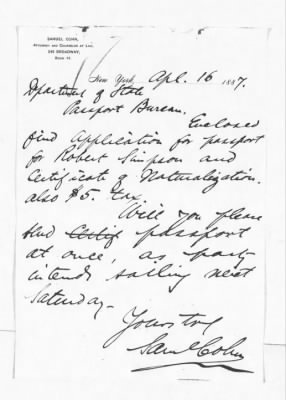 SAMUEL COHN,
ATTORNEY AND COUNSELOR AT LAW,
346 BROADWAY,
New York, Apl. 16 1887.
Department of State
Passport Bureau.
Enclosed
find application for passport
for Robert Simpson and
Certificate of Naturalization.
also $5. tax
Will you please
send Certif passport
at once, as party
intends sailing next
Saturday—
Yours try
Saml Cohn